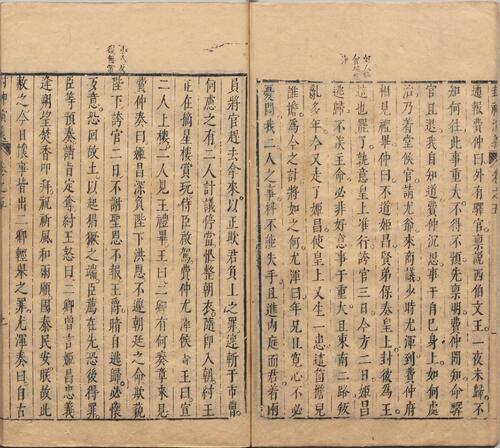 通報費仲曰外有驛官稟說西伯文王一夜未歸不
知何往此事重大不得不預先稟明費仲聞知命驛
官且退我自知道費仲沉思事干自巳身上如何處
治乃着堂候官請尤爺來商議少時尤渾到費仲府
相見禮畢仲曰不道姬昌賢弟保奏皇上封彼為王
這也罷了孰意皇上准行誇官三日今方二日姬昌
逃歸不俟王命必非好意事干重大且東南二路叛
亂多年今又走了姬昌使皇上又生一患這箇擔兒
誰擔為今之計將如之何尤渾曰年兄且寬心不必
憂悶我二人之事料不能失手且進內庭面君着兩
員將官趕去拿來以正欺君負上之罪速斬于市曹
何慮之有二人計議停當慌整朝衣隨即入朝紂王
正在摘星樓賞玩侍臣啟駕費仲尤渾候旨王曰宣
二人上樓二人見王禮畢王曰二卿有何奏章來見
費仲奏曰姬昌深負陛下洪恩不遵朝廷之命欺藐
陛下誇官二日不謝聖恩不報王爵暗自逃歸必懷
歹意恐回故土以起猖獗之端臣薦在先恐後得罪
臣等預奏請旨定奪紂王怒曰二卿曾言姬昌忠義
逢朔望焚香叩拜祝祈風和雨順國泰民安朕故此
赦之今日壞事皆出二卿輕舉之罪尤渾奏曰自古